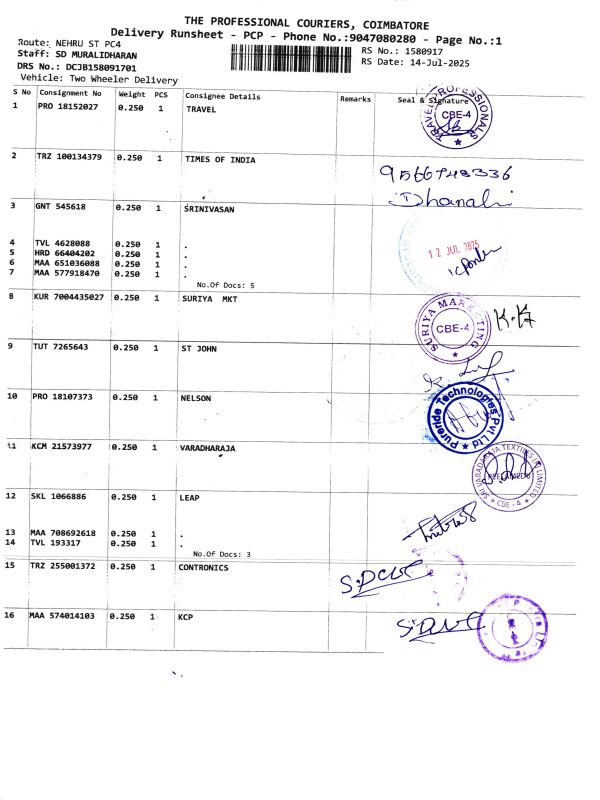 THE PROFESSIONAL COURIERS, COIMBATORE
Delivery Runsheet - PCP - Phone No.:9047080280 - Page No.:1
Route: NEHRU ST PC4
RS No.: 1580917
Staff: SD MURALIDHARAN
RS Date: 14-Jul-2025
DRS No.: DCJB158091701
Vehicle: Two Wheeler Delivery
S No Consignment No Weight PCS Consignee Details Remarks Seal & Signature
1 PRO 18152027 0.250 1 TRAVEL
TRAVEL PROFESSIONALS
CBE-4
2 TRZ 100134379 0.250 1 TIMES OF INDIA
9566748336
Dhanali
3 GNT 545618 0.250 1 SRINIVASAN
4 TVL 4628088 0.250 1 .
5 HRD 66404202 0.250 1 .
6 MAA 651036088 0.250 1 .
7 MAA 577918470 0.250 1 .
12 JUL 2025
No.Of Docs: 5
8 KUR 7004435027 0.250 1 SURIYA MKT
SURIYA MARKETING
CBE-4
K.K
9 TUT 7265643 0.250 1 ST JOHN
10 PRO 18107373 0.250 1 NELSON
Pureride Technologies Pvt Ltd
11 KCM 21573977 0.250 1 VARADHARAJA
SRI VARADARAJA TEXTILES (P) LIMITED
PEELAMEDU
CBE - 4
12 SKL 1066886 0.250 1 LEAP
13 MAA 708692618 0.250 1 .
14 TVL 193317 0.250 1 .
No.Of Docs: 3
15 TRZ 255001372 0.250 1 CONTRONICS
16 MAA 574014103 0.250 1 KCP